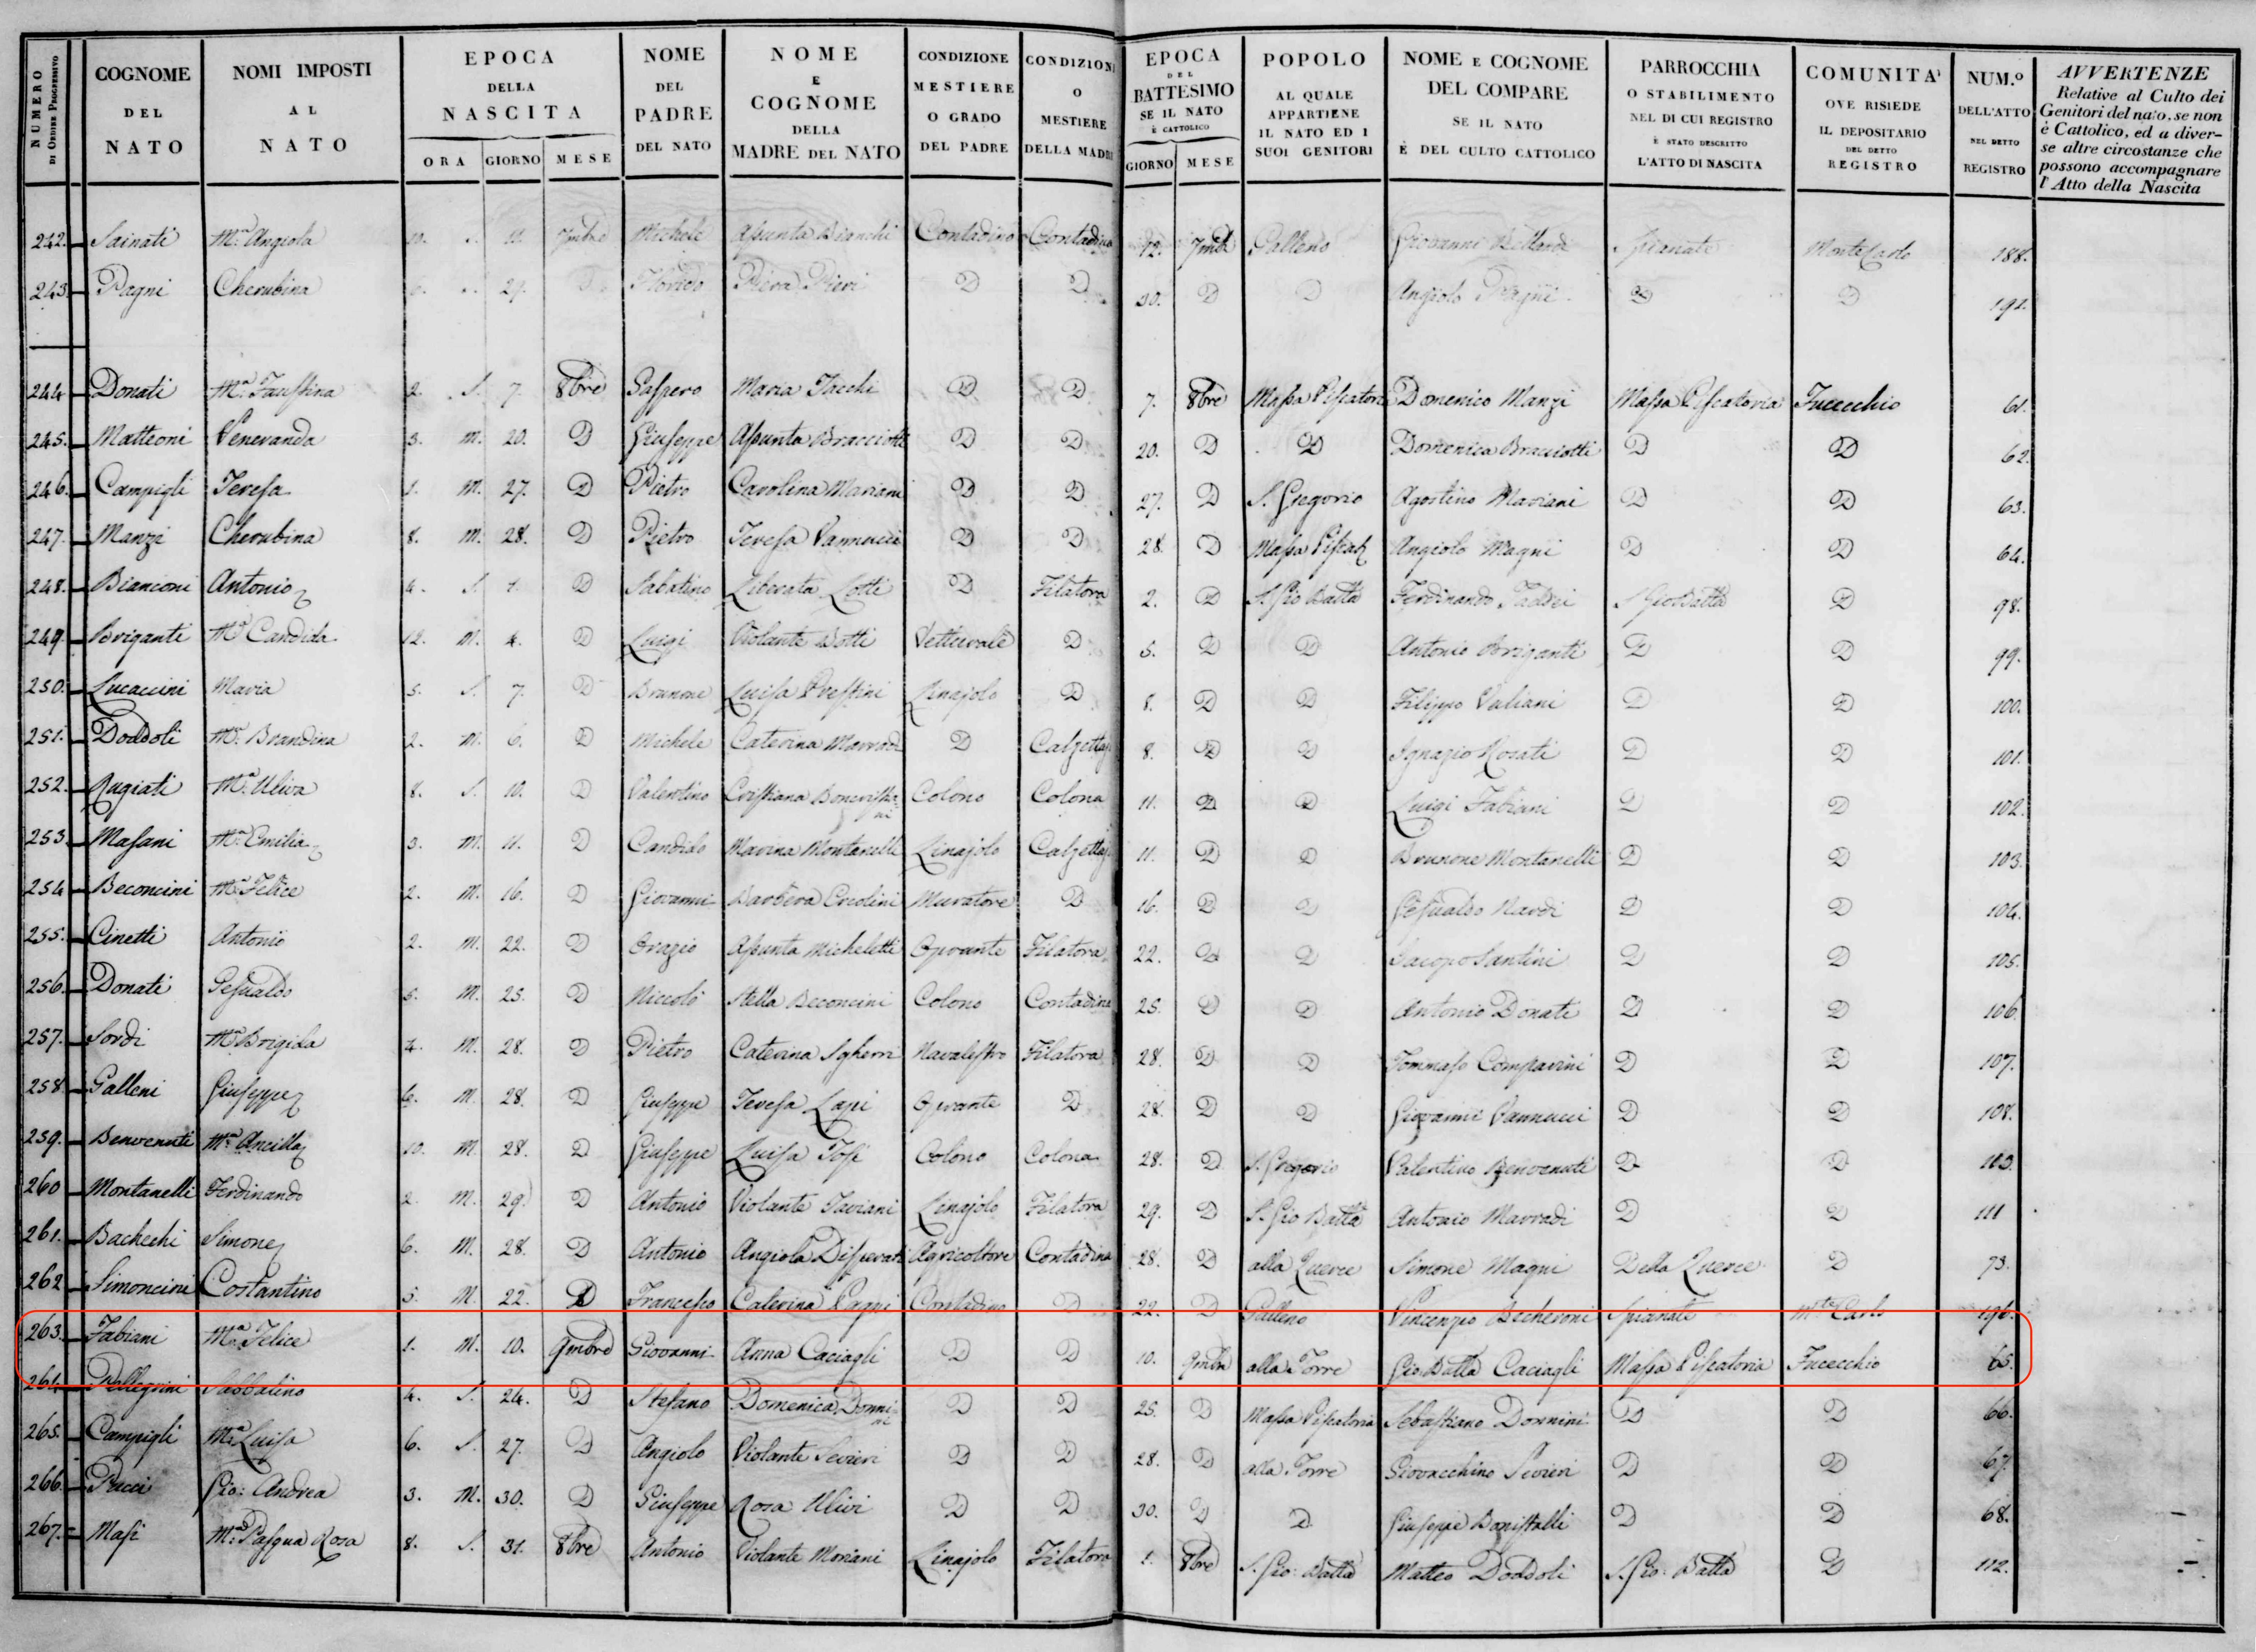 NUMERO DI ORDINE PROGRESSIVO
COGNOME DEL NATO
NOMI IMPOSTI AL NATO
EPOCA DELLA NASCITA
ORA GIORNO MESE
NOME DEL PADRE DEL NATO
NOME E COGNOME DELLA MADRE DEL NATO
CONDIZIONE MESTIERE O GRADO DEL PADRE
CONDIZIONE O MESTIERE DELLA MADRE
EPOCA DEL BATTESIMO SE IL NATO È CATTOLICO
GIORNO MESE
POPOLO AL QUALE APPARTIENE IL NATO ED I SUOI GENITORI
NOME E COGNOME DEL COMPARE SE IL NATO È DEL CULTO CATTOLICO
PARROCCHIA O STABILIMENTO NEL DI CUI REGISTRO È STATO DESCRITTO L'ATTO DI NASCITA
COMUNITA' OVE RISIEDE IL DEPOSITARIO DEL DETTO REGISTRO
NUM.º DELL'ATTO NEL DETTO REGISTRO
AVVERTENZE
Relative al Culto dei
Genitori del nato, se non
è Cattolico, ed a diver-
se altre circostanze che
possono accompagnare
l' Atto della Nascita
242. Sainati Mª Angiola 10. S. 11. 7mbre Michele Assunta Bianchi Contadino Contadina 12. 7mbre Galleno Giovanni Spianate MonteCarlo 188.
243. Pagni Cherubina 29. D Florido Piera Pieri D D 30. D D Angiolo Pagni D D 192.
244. Donati Mª Faustina 2. S. 7. 8bre Gaspero Maria Tacchi D D 7. 8bre Massa Piscatoria Domenico Manzi Massa Piscatoria Fucecchio 61.
245. Matteoni Veneranda 3. M. 20. D Giuseppe Assunta Bracciotti D D 20. D D Domenica Bracciotti D D 62.
246. Campigli Teresa 1. M. 27. D Pietro Carolina Mariani D D 27. D S. Gregorio Agostino Mariani D D 63.
247. Manzi Cherubina 8. M. 28. D Pietro Teresa Vannucci D D 28. D Massa Piscat Angiolo Magni D D 64.
248. Bianconi Antonio 4. S. 1. D Sabatino Liberata Lotti D Filatora 2. D S. Gio Batta Ferdinando Taddei S GioBatta D 98.
249. Briganti Mª Candida 12. M. 4. D Luigi Violante Botti Vetturale D 5. D D Antonio Briganti D D 99.
250. Lucaccini Maria 5. S. 7. D Brunone Luisa Prestini Linajolo D 8. D D Filippo Valiani D D 100.
251. Doddoli Mª Brandina 2. M. 6. D Michele Caterina Marradi D Calzettaja 8. D D Ignazio Rosati D D 101.
252. Rugiati Mª Uliva 8. S. 10. D Valentino Cristiana Colono Colona 11. D D Luigi Fabiani D D 102.
253. Masani Mª Emilia 3. M. 11. D Candido Marina Montanelli Linajolo Calzettaja 11. D D Brunone Montanelli D D 103.
254 Beconcini Mª Felice 2. M. 16. D Giovanni Barbera Ercolini Muratore D 16. D D Gesualdo Nardi D D 104.
255. Cinetti Antonio 2. M. 22. D Orazio Assunta Micheletti Oprante Filatora 22. D D Jacopo Santini D D 105.
256. Donati Gesualdo 5. M. 25. D Niccolò Stella Beconcini Colono Contadina 25. D D Antonio Donati D D 106
257. Sordi Mª Brigida 4. M. 28. D Pietro Caterina Sgherri Navalestro Filatora 28. D D Tommaso Comparini D D 107.
258. Galleni Giuseppe 6. M. 28. D Giuseppe Teresa Lapi Oprante D 28. D D Giovanni Vannucci D D 108.
259. Benvenuti Mª Ancilla 10. M. 28. D Giuseppe Luisa Tosi Colono Colona 28. D S. Gregorio Valentino Benvenuti D D
260 Montanelli Ferdinando 2. M. 29. D Antonio Violante Taviani Linajolo Filatora 29. D S. Gio Batta Antonio Marradi D D 111
261. Bachechi Simone 6. M. 28. D Antonio Angiola Disperati Agricoltore Contadina 28. D alla Querce Simone Magni Della Querce D 73.
262 Simoncini Costantino 5. M. 22. D Francesco Caterina Pagni Contadino D 22. D Galleno Vincenzio Becheroni Spianate Mte Carlo 196.
263. Fabiani Mª Felice 1. M. 10. 9mbre Giovanni Anna Caciagli D D 10. 9mbre alla Torre Gio Batta Caciagli Massa Piscatoria Fucecchio 65.
264. Pellegrini Sabbatino 4. S. 24. D Stefano Domenica Donnini D D 25. D Massa Piscatoria Sebastiano Donnini D D 66.
265. Campigli Mª Luisa 6. S. 27. D Angiolo Violante Sevieri D D 28. D alla Torre Giovacchino Sevieri D D 67.
266. Pucci Gio: Andrea 3. M. 30. D Giuseppe Rosa Ulivi D D 30. D D Giuseppe Bonistalli D D 68.
267. Masi Mª Pasqua Rosa 8. S. 31. 8bre Antonio Violante Moriani Linajolo Filatora 1. 8bre S. Gio: Batta Matteo Doddoli S. Gio: Batta D 112.